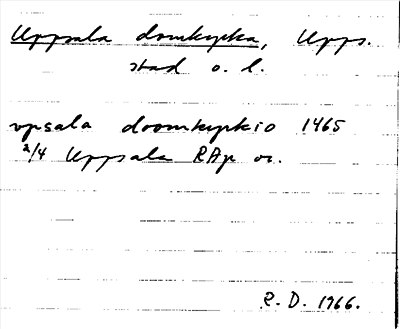 Uppsala domkyrka, Upps.
stad o. l.
vpsala doomkyrkio 1465
2/4 Uppsala RAp or.
R. D. 1966.